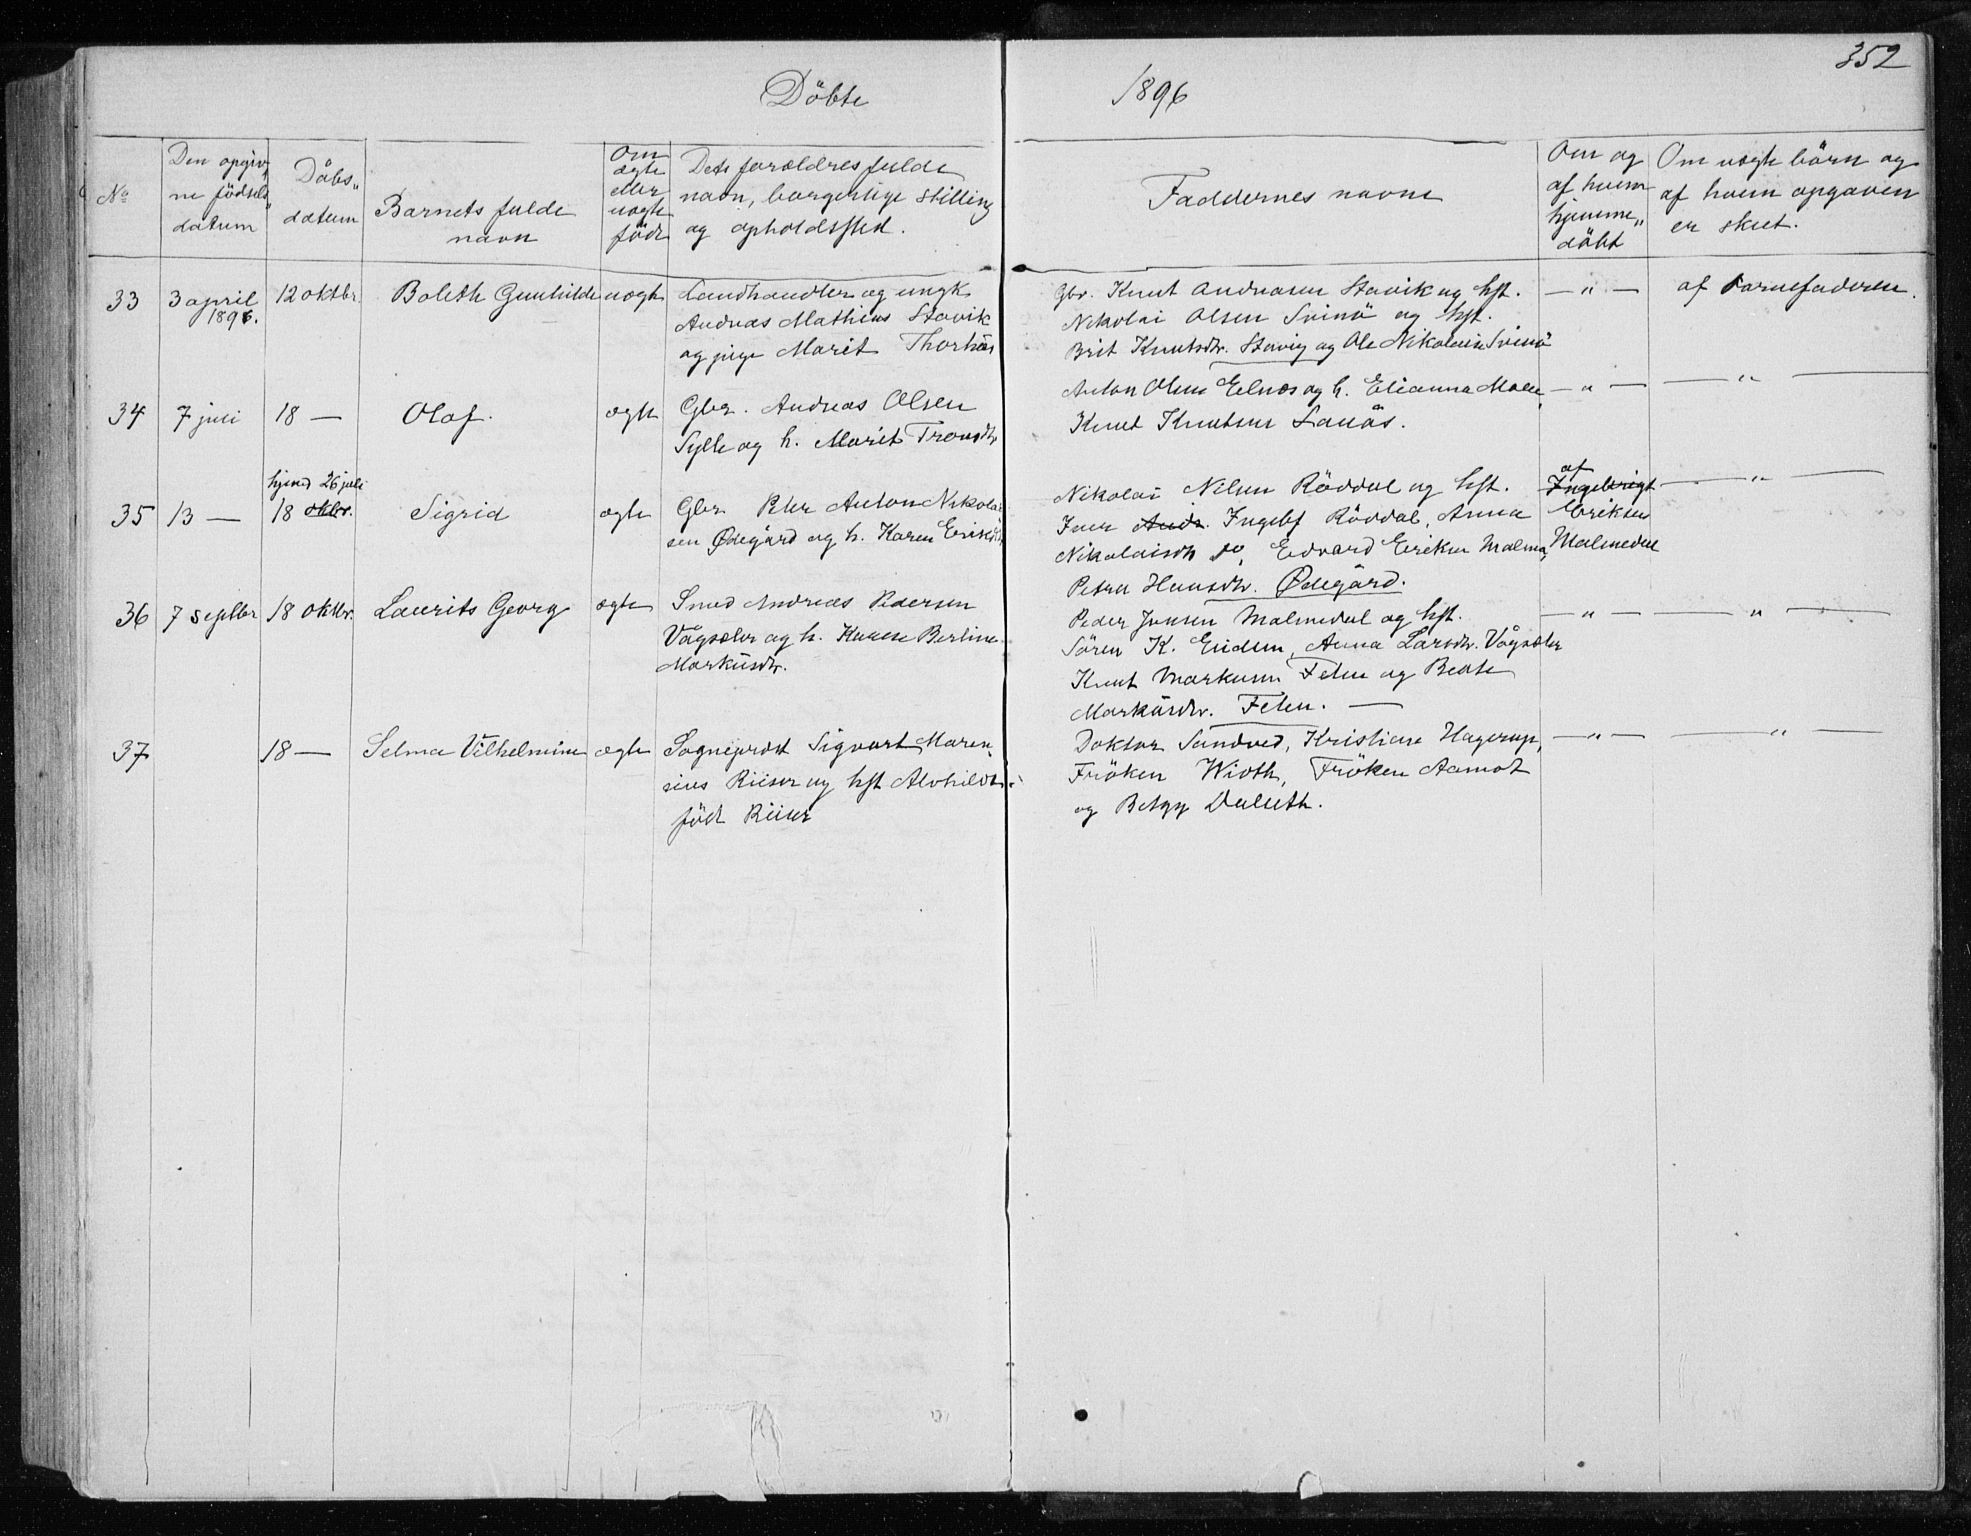 352
Döbte 1896
No
Den opgiv,,
ne födsels,,
datum
Dåbs,,
datum
Barnets fulde
navn
Om
ægte
eller
uægte
född
Dets forældres fulde
navn, borgerlige stilling
og opholdssted.
Faddernes navne
Om og
af hvem
hjemme,,
döbt
Om uægte börn og
af hvem opgaven
er skeet.
33 3 april 1896. 12 oktbr. Boleth Gunhilde uægte
Landhandler og ungk.
Andreas Mathias Stavik
og pige Marit Thornæs
Gbr. Knut Andreasen Stavik og hst.
Nikolai Olsen Svinö og hst.
Brit Knutsdtr. Stavig og Ole Nikolaisen Svinö
— " — af Barnefaderen.
34 7 juli 18 — Olaf. ægte
Gbr. Andreas Olsen
Sylte og h. Marit Tronsdtr.
Anton Olsen Eelnæs og h. Elianna Moen
Knut Knutsen Lanäs.
— " — — " —
35 13 — hjemd 26 juli
18 oktbr. Sigrid ægte
Gbr. Peter Anton Nikolai
sen Ødegård og h. Karen Eriksdtr.
Nikolai Nilsen Röddal og hst.
Iver Andr. Ingebr Röddal, Anna
Nikolaisdtr do, Edvard Eriksen Malme,
Petra Hansdtr. Ødegård.
af
Ingebrigt
Eriksen
Malmedal
— " —
36 7 septbr 18 oktbr. Laurits Georg ægte
Smed Andreas Pedersen
Vågsæter og h. Hanse Berline
Markusdtr.
Peder Jensen Malmedal og hst.
Sören K. Eidem, Anna Larsdtr. Vågsæter
Knut Markusen Felen og Beate
Markusdtr. Felen. —
— " — — " —
37 18 — Selma Vilhelmine ægte
Sogneprest Sigvart Maren,,
sius Riiser og hst Alvhilde
född Riiser
Doktor Sandved, Kristiane Hagerup,
Fröken Wioth, Fröken Aamot
og Betzy Daleth.
— " — — " —